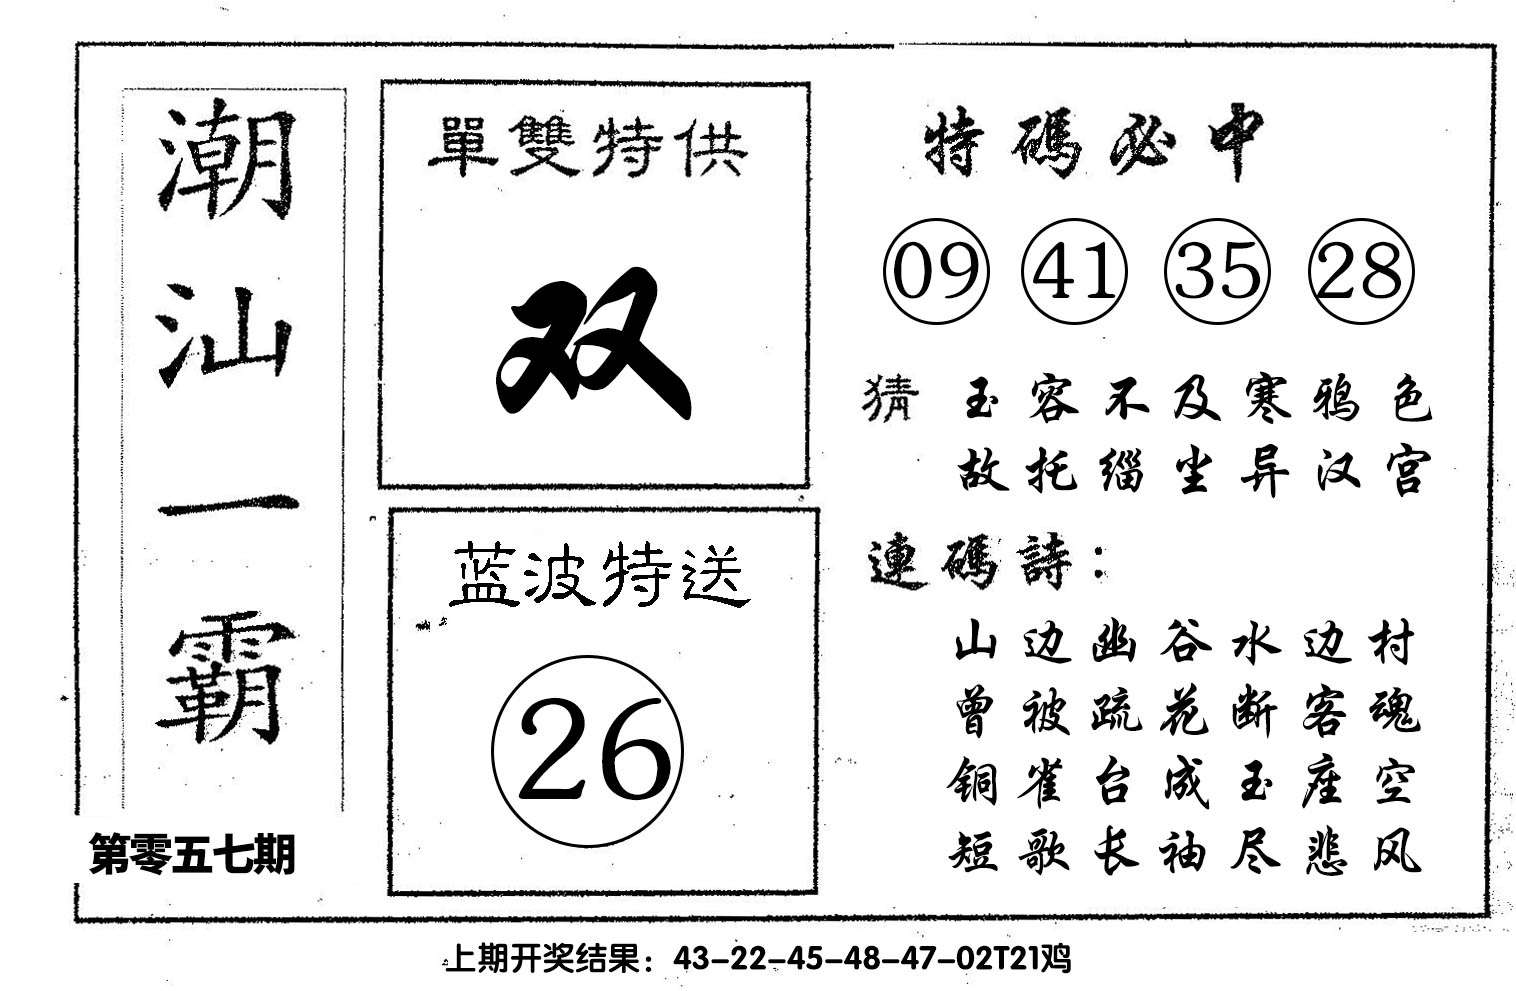 潮汕一霸
第零五七期
單雙特供
双
蓝波特送
26
特碼必中
09 41 35 28
猜 玉容不及寒鸦色
故托缁尘异汉宫
連碼詩：
山边幽谷水边村
曾被疏花断客魂
铜雀台成玉座空
短歌长袖尽悲风
上期开奖结果：43-22-45-48-47-02T21鸡